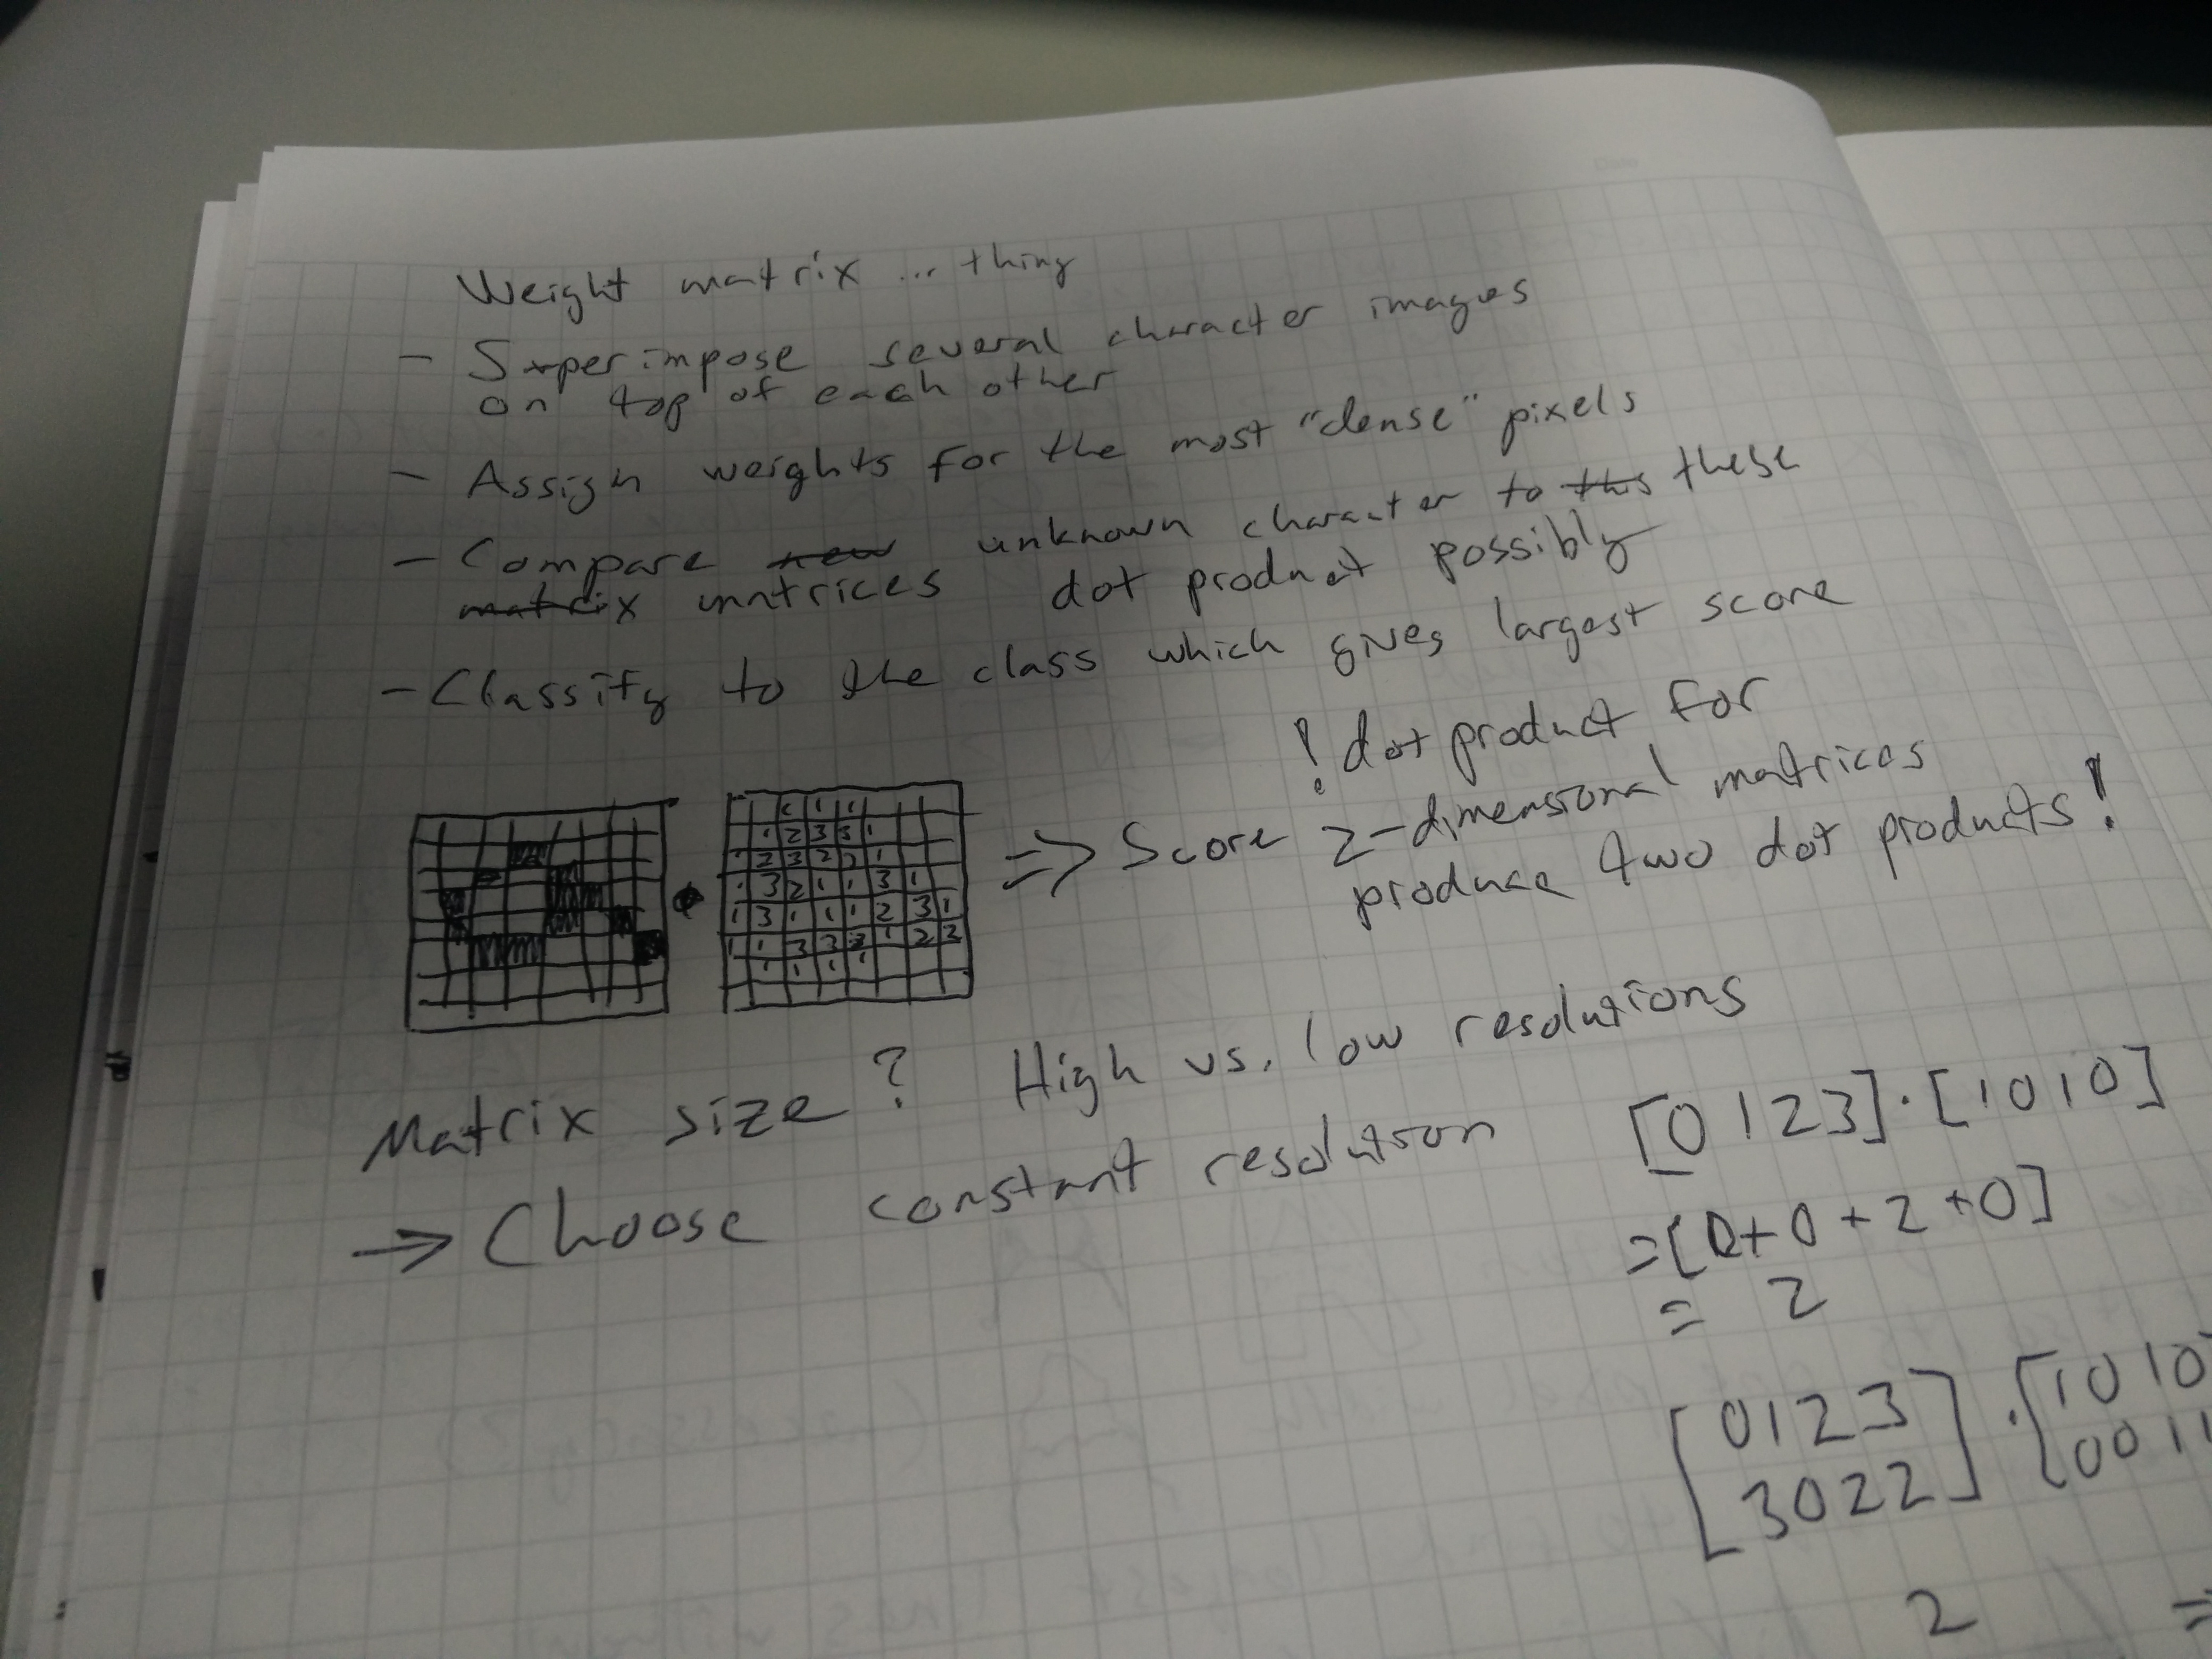 Weight matrix ... thing
- Superimpose several character images
on top of each other
- Assign weights for the most "dense" pixels
- Compare new unknown character to this these
matrix matrices dot product possibly
- Classify to the class which gives largest score
! dot product for
2-dimensional matrices
produce two dot products!
1 1
1 2 3 3 1
1 2 3 2 2 1
1 3 2 1 1 3 1
1 3 1 1 1 2 3 1
1 1 3 3 3 1 2 3
1 1 1 1
=> Score
Matrix size? High vs. low resolutions
→ Choose constant resolution
[0 1 2 3] · [1 0 1 0]
= [0 + 0 + 2 + 0]
= 2
[0 1 2 3 · [1 0 1 0
3 0 2 2] 0 0 1 1
2 =